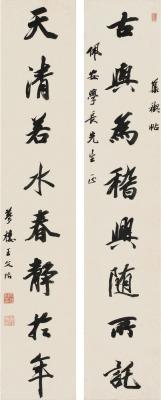 集禊帖
古與為稽興隨所託
佩安學長先生正
天清若水春靜於年
夢樓王文治